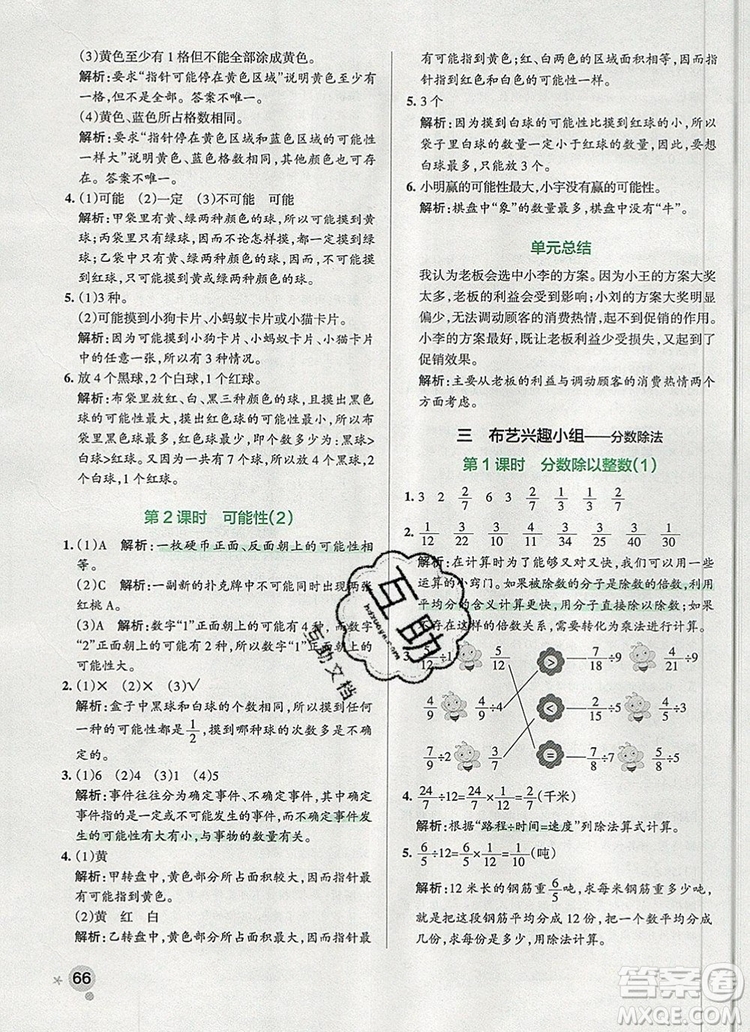 (3)黄色至少有 1 格但不能全部涂成黄色。
解析:要求“指针可能停在黄色区域”说明黄色至少有
一格,但不是全部。答案不唯一。
(4)黄色、蓝色所占格数相同。
解析:要求“指针停在黄色区域和蓝色区域的可能性
一样大”说明黄色、蓝色格数相同,其他颜色也可存
在。答案不唯一。
4. (1)可能 (2)一定 (3)不可能 可能
解析:甲袋里有黄、绿两种颜色的球,可能摸到黄球;
丙袋里只有绿球,所以任意摸一个球,一定能摸到绿
球;乙袋里有红、绿两种颜色的球,所以不可能摸到
黄球,可能摸到绿球。
5. (1)3 种。
(2)可能摸到小狗卡片、小蚂蚁卡片或小猫卡片。
解析:可能摸到小狗卡片、小蚂蚁卡片、小猫卡片中
的任意一张,所以共有 3 种情况。
6. 放 4 个黑球,2 个白球,1 个红球。
解析:布袋里放红、白、黑三种颜色的球,摸出黑色球
的可能性最大,摸出红球的可能性最小,则黑球最
多,红球最少,即少数多少为:黑球>白球>红球或黑球
>白球>红球。又因为一共放 7 个球,所以放 4 个黑
球,2 个白球,1 个红球。
第 2 课时 可能性(2)
1. (1)A 解析:一枚硬币正面、反面朝上的可能性相
等。
(2)C 解析:一副新的扑克牌中不可能摸到两张
红桃A。
(3)A 解析:数字“1”正面朝上的可能有 4 种,而数字
“2”正面朝上的可能有 2 种,所以数字“1”正面朝上
的可能性大一些。
2. (1)× (2)× (3)√
解析:盒子中黑球和白球的个数不确定,所以摸到黑
球的可能性不一定是1/2,摸到哪种球的次数多是不确
定的。
3. (1)6 (2)4 (3)2 (4)4
解析:事件往往分为确定事件、不确定事件,其中确
定事件指的是一定或不可能发生的事件,而不确定事件发
生的可能性有大有小,与事物的数量有关。
4. (1)黄
解析:甲转盘中,黄色部分所占面积较大,所以指针
最可能指向黄色。
(2)黄 红 白
解析:乙转盘中,黄色部分所占面积最大,所以指针最
66
有可能指向黄色;红、白两色的面积一样大,所以指
针指到红色和白色的可能性一样。
5. 3 个
解析:因为摸到白球的可能性比摸到红球的小,所以
袋子里白球的数量一定小于红球的数量,所以里面
白球最多放 3 个。
6. 小明赢的可能性最大,小宇没有赢的可能性。
解析:棋盘中“象”的数量最多,棋盘中没有“牛”。
单元总结
我认为老板会选中小李的方案。因为小王的方案大奖
太多,老板的利益会受到影响;小刘的方案奖项明显
偏少,无法调动顾客的消费热情,起不到促销的作用。
小李的方案既让老板利益少受损失,又能起到
促销效果。
解析:主要从老板的利益与调动顾客的消费热情两个
方面考虑。
三 布艺兴趣小组——分数除法
第 1 课时 分数除以整数(1)
1. 3 2 2/7 6 3/7 2/7
2. 1/12 1/30 4/9 3/22 2/13 4/39
解析:在计算时为了能够又对又快,我们可以使用一些
运算的小窍门。如果被除数的分子是除数的倍数,利用
平均分的含义计算更快,用分子直接除以除数;如果
没有这样的倍数关系,需要转化为乘法进行计算。
3. 5/12÷1 5/12 > 7/18÷9 4/21÷7
4/9÷3 4/9 < 5/18÷5 2/5÷3
7/9÷2 7/9 = 5/18÷5 8/7÷5
4. 24/7÷12=24/7×1/12=2/7(千米)
解析:根据“路程÷时间=速度”列除法算式计算。
5. 6/5÷12=6/5×1/12=1/10(吨)
解析:12 米长的钢筋重6/5吨,求每米钢筋重多少吨,
就是把这根钢筋平均分成 12 份,把一个数平均分成
几份,求一份是多少,用除法解答。
互助
hdzuoye.com
互助文档
答案圈
MXQE.COM